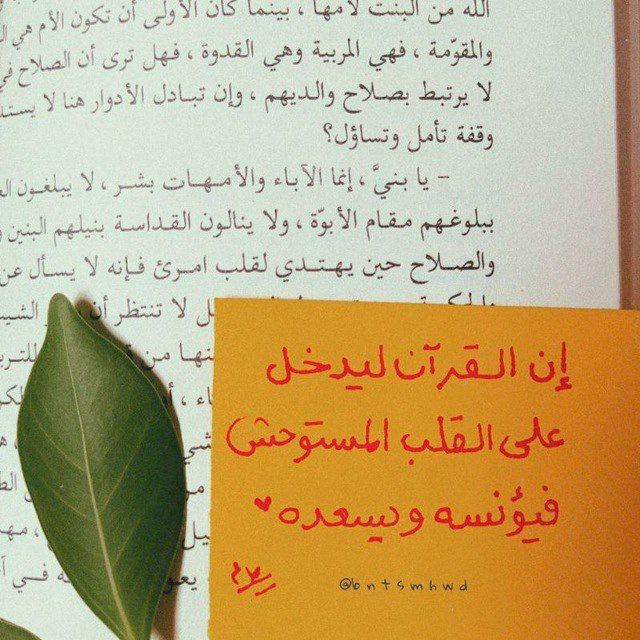 الله من البنت لأمها ، بينما كان الأولى أن تكون الأم هي
والمقوّمة ، فهي المربية وهي القدوة ، فهل ترى أن الصلاح في
لا يرتبط بصلاح والديهم ، وإن تبادل الأدوار هنا لا
وقفة تأمل وتساؤل؟
– يا بنيَّ ، إنما الآباء والأمهات بشر ، لا يبلغون
ببلوغهم مقام الأبوّة ، ولا ينالون القداسة بنيلهم البنين
والصلاح حين يهتدي لقلب امرئ فإنه لا يسأل عن
لا تنتظر أن
إن القرآن ليدخل
على القلب المستوحش
فيؤنسه ويسعده ♥
@bntsmhwd